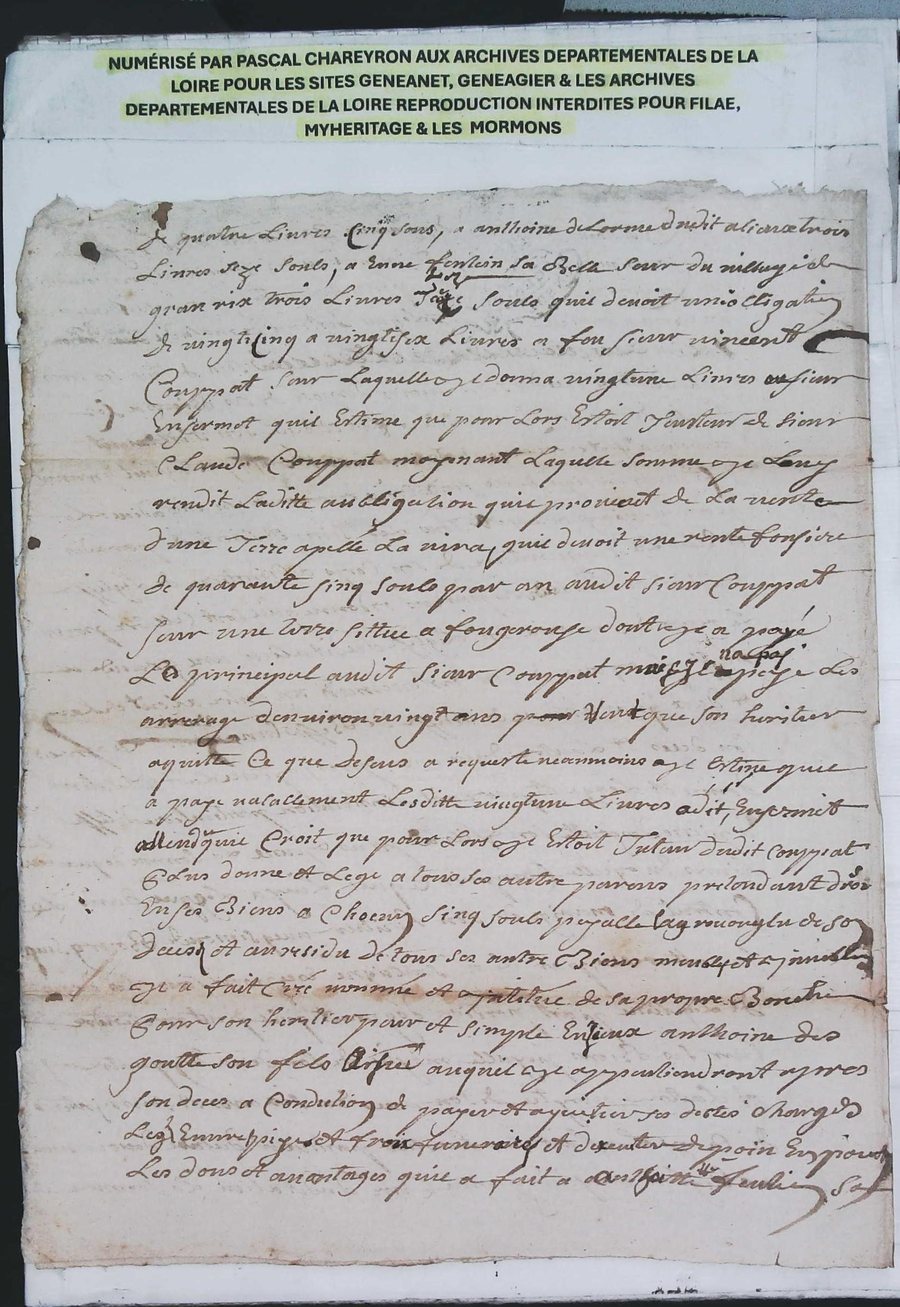 NUMÉRISÉ PAR PASCAL CHAREYRON AUX ARCHIVES DEPARTEMENTALES DE LA
LOIRE POUR LES SITES GENEANET, GENEAGIER & LES ARCHIVES
DEPARTEMENTALES DE LA LOIRE REPRODUCTION INTERDITES POUR FILAE,
MYHERITAGE & LES MORMONS
de quatre Livres Cinq sous, a anthoine deLorme dudit alieux trois
Livres seze souls, a Enne sa Belle sœur du village de
gran rix trois Livres souls quil devoit une obligation
de vingt Cinq a vingt six Livres a feu sieur vincent
Couppat sur Laquelle yl donna vingt une Livres au sieur
Enjermot quil Estime que pour Lors Estoit Tuteur de sieur
CLaude Couppat moyenant Laquelle somme yl Luy
rendit Laditte aubligation qui provient de La vente
d'une Terre apellé La vira, quil devoit une rente fonsiere
de quarante sinq souls par an audit sieur Couppat
sur une terre sittue a fougerouse dont yl a payé
Le principal audit sieur Couppat mais yl na pas paye Les
arrerage d'environ vingt ans veut que son heritier
aquitte Ce que desus a requeste neanmoins yl Estime quil
a paye Lesditte vingt une Livres adit Enjermot
attendu quil Croit que pour Lors yl Estoit Tuteur dudit Couppat
Plus donne et Lege a tous ses autre parens pretendant droi
En ses Biens a Chacun sinq souls payable de son
deces et au residu de tous ses autre Biens meuble et
yl a fait Cré nommé et de sa propre Bouche
Pour son heritier pur et simple anthoine des
goutte son fils auquel yl appartiendront apres
son deces a Condition de payer et aquitter ses dettes Charges
Legs et frais funeraires et
Les dons et avantages quil a fait a sa